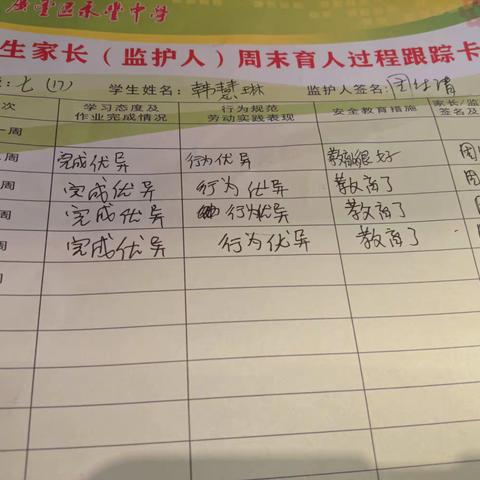 生家长（监护人）周末育人过程跟踪卡
七（17） 学生姓名：韩慧琳 监护人签名：
次 学习态度及作业完成情况 行为规范劳动实践表现 安全教育措施 家长/监 签名及
一周
周 完成优异 行为优异 教育很好 周
周 完成优异 行为优异 教育了 周
周 完成优异 行为优异 教育了 周
周 完成优异 行为优异 教育了 周
周